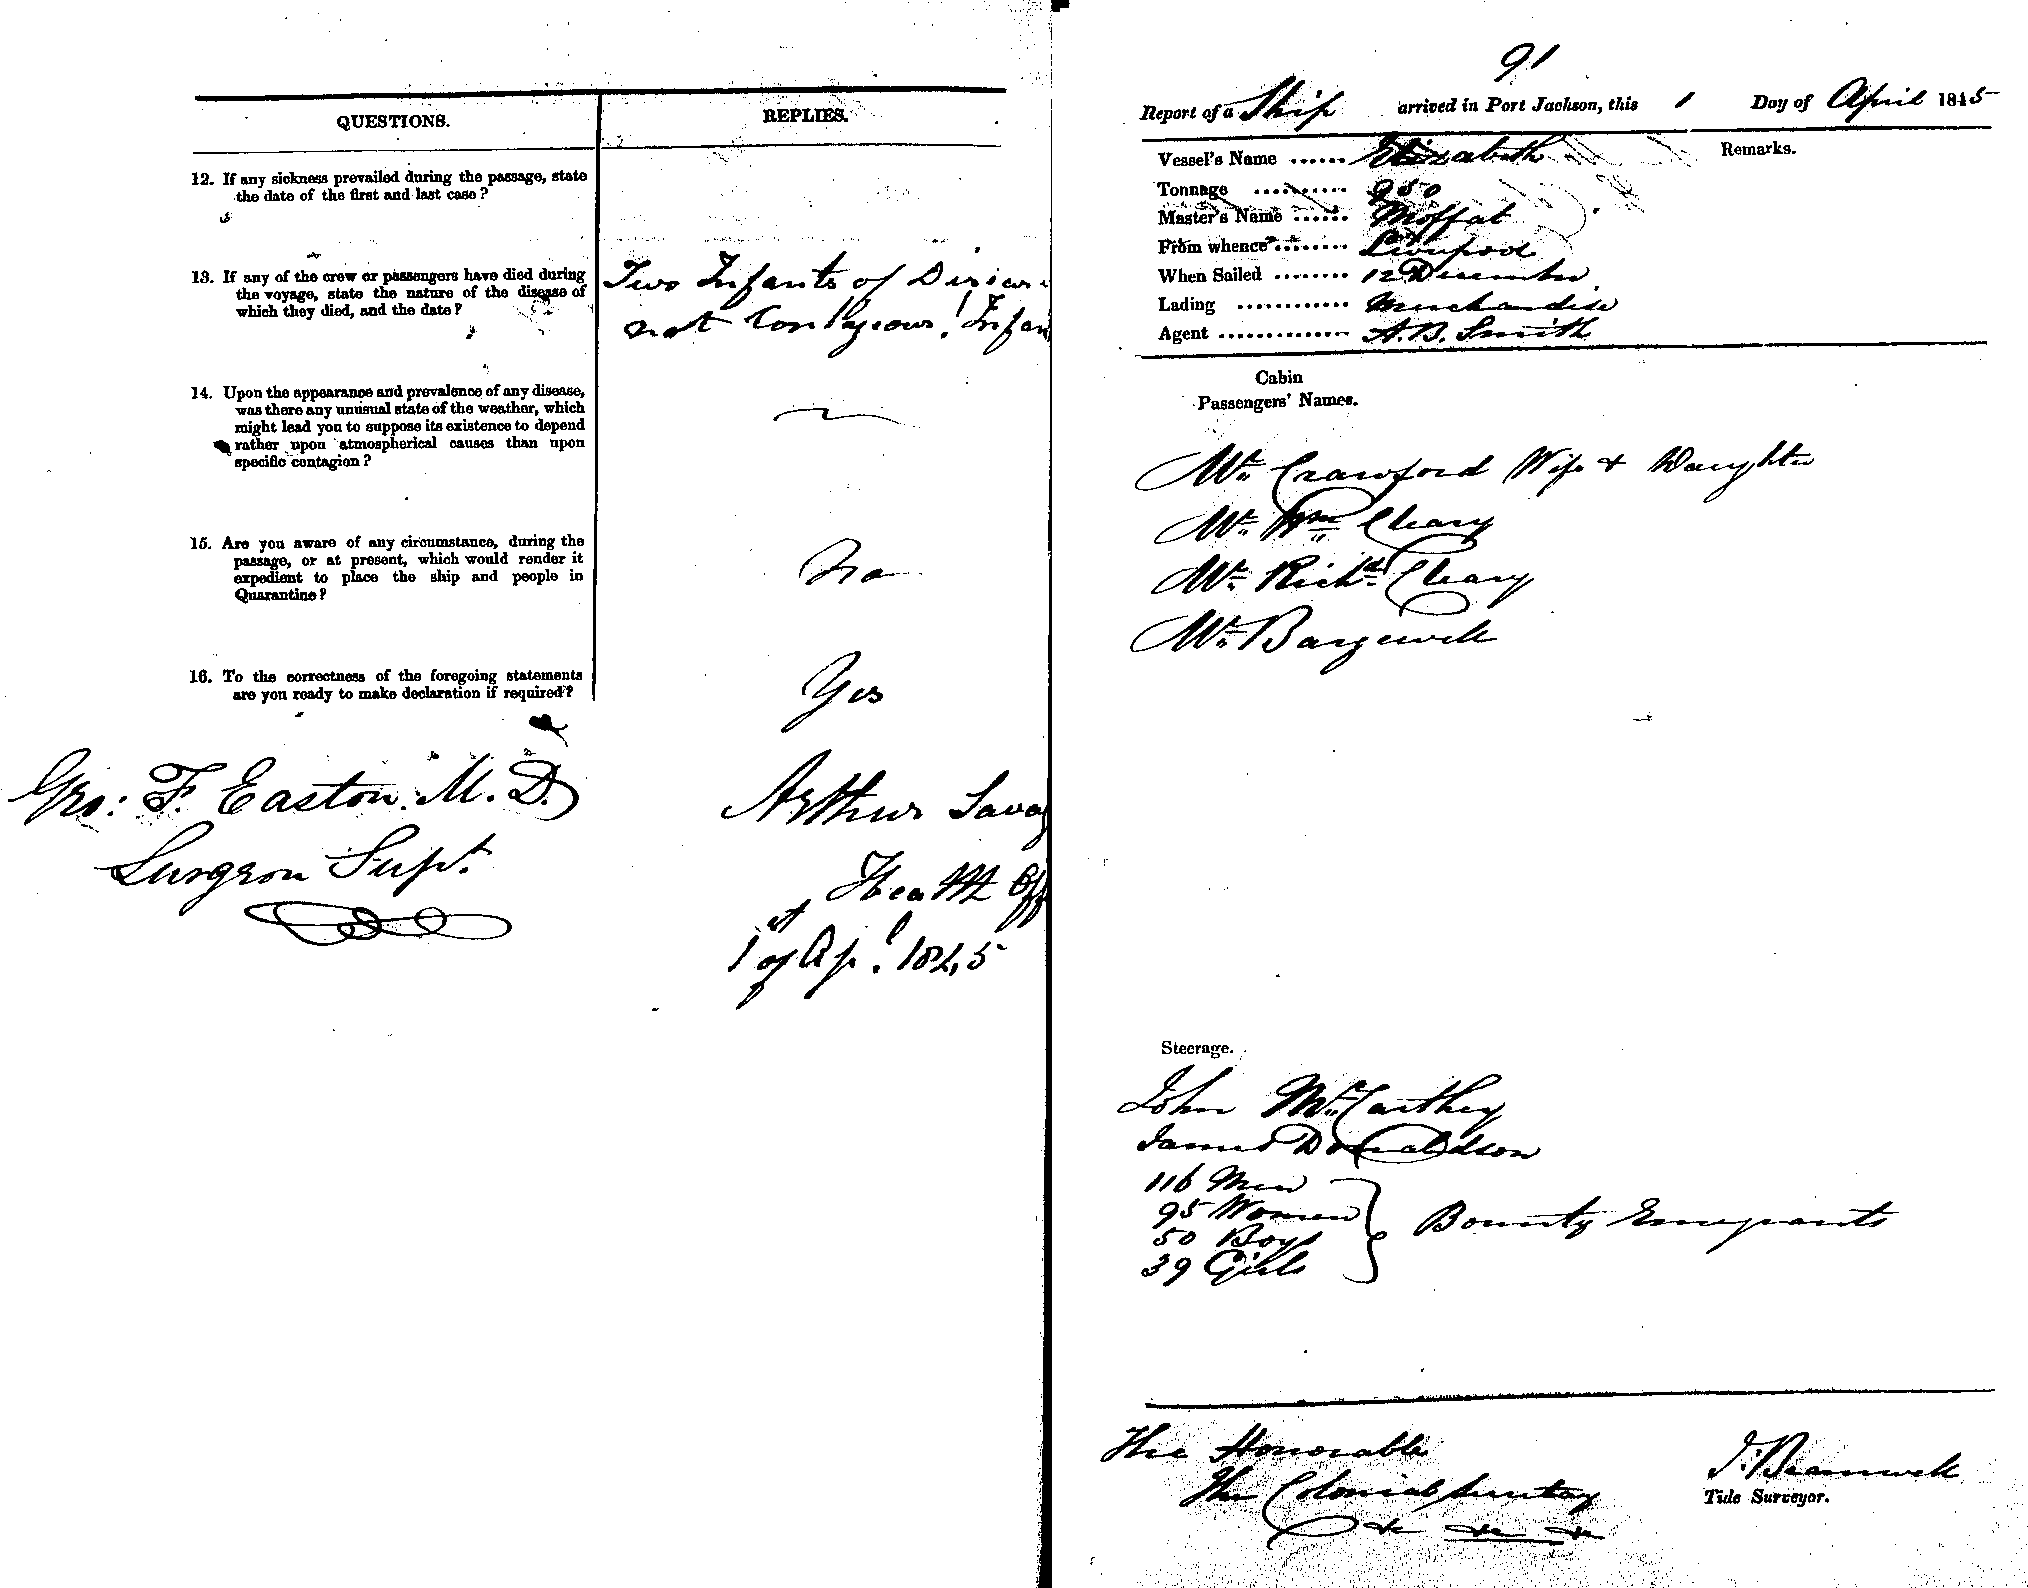 QUESTIONS.
REPLIES.
12. If any sickness prevailed during the passage, state
the date of the first and last case?
13. If any of the crew or passengers have died during
the voyage, state the nature of the disease of
which they died, and the date?
Two Infants of
not Contageous! Infan
14. Upon the appearance and prevalence of any disease,
was there any unusual state of the weather, which
might lead you to suppose its existence to depend
rather upon atmospherical causes than upon
specific contagion?
15. Are you aware of any circumstance, during the
passage, or at present, which would render it
expedient to place the ship and people in
Quarantine?
No
16. To the correctness of the foregoing statements
are you ready to make declaration if required?
Yes
Geo: F. Easton. M. D.
Surgeon Supt.
Arthur Savag
Health Off
1st of Apl. 1845
91
Report of a Ship arrived in Port Jackson, this 1 Day of April 1845
Vessel's Name ...... Elizabeth
Remarks.
Tonnage .......... 950
Master's Name ...... Moffat
From whence ........ Liverpool
When Sailed ........ 12 December
Lading ............ Merchandise
Agent ............. A. B. Smith
Cabin
Passengers' Names.
Mr. Crawford Wife + Daughter
Mr. Wm Cleary
Mr. Richd Cleary
Mr. Bargewell
Steerage.
John McCarthey
James Donaldson
116 Men
95 Women
50 Boys
39 Girls
Bounty Emegrants
The Honorable
The Colonial Secretary
&c &c &c
J. Bramwell
Tide Surveyor.